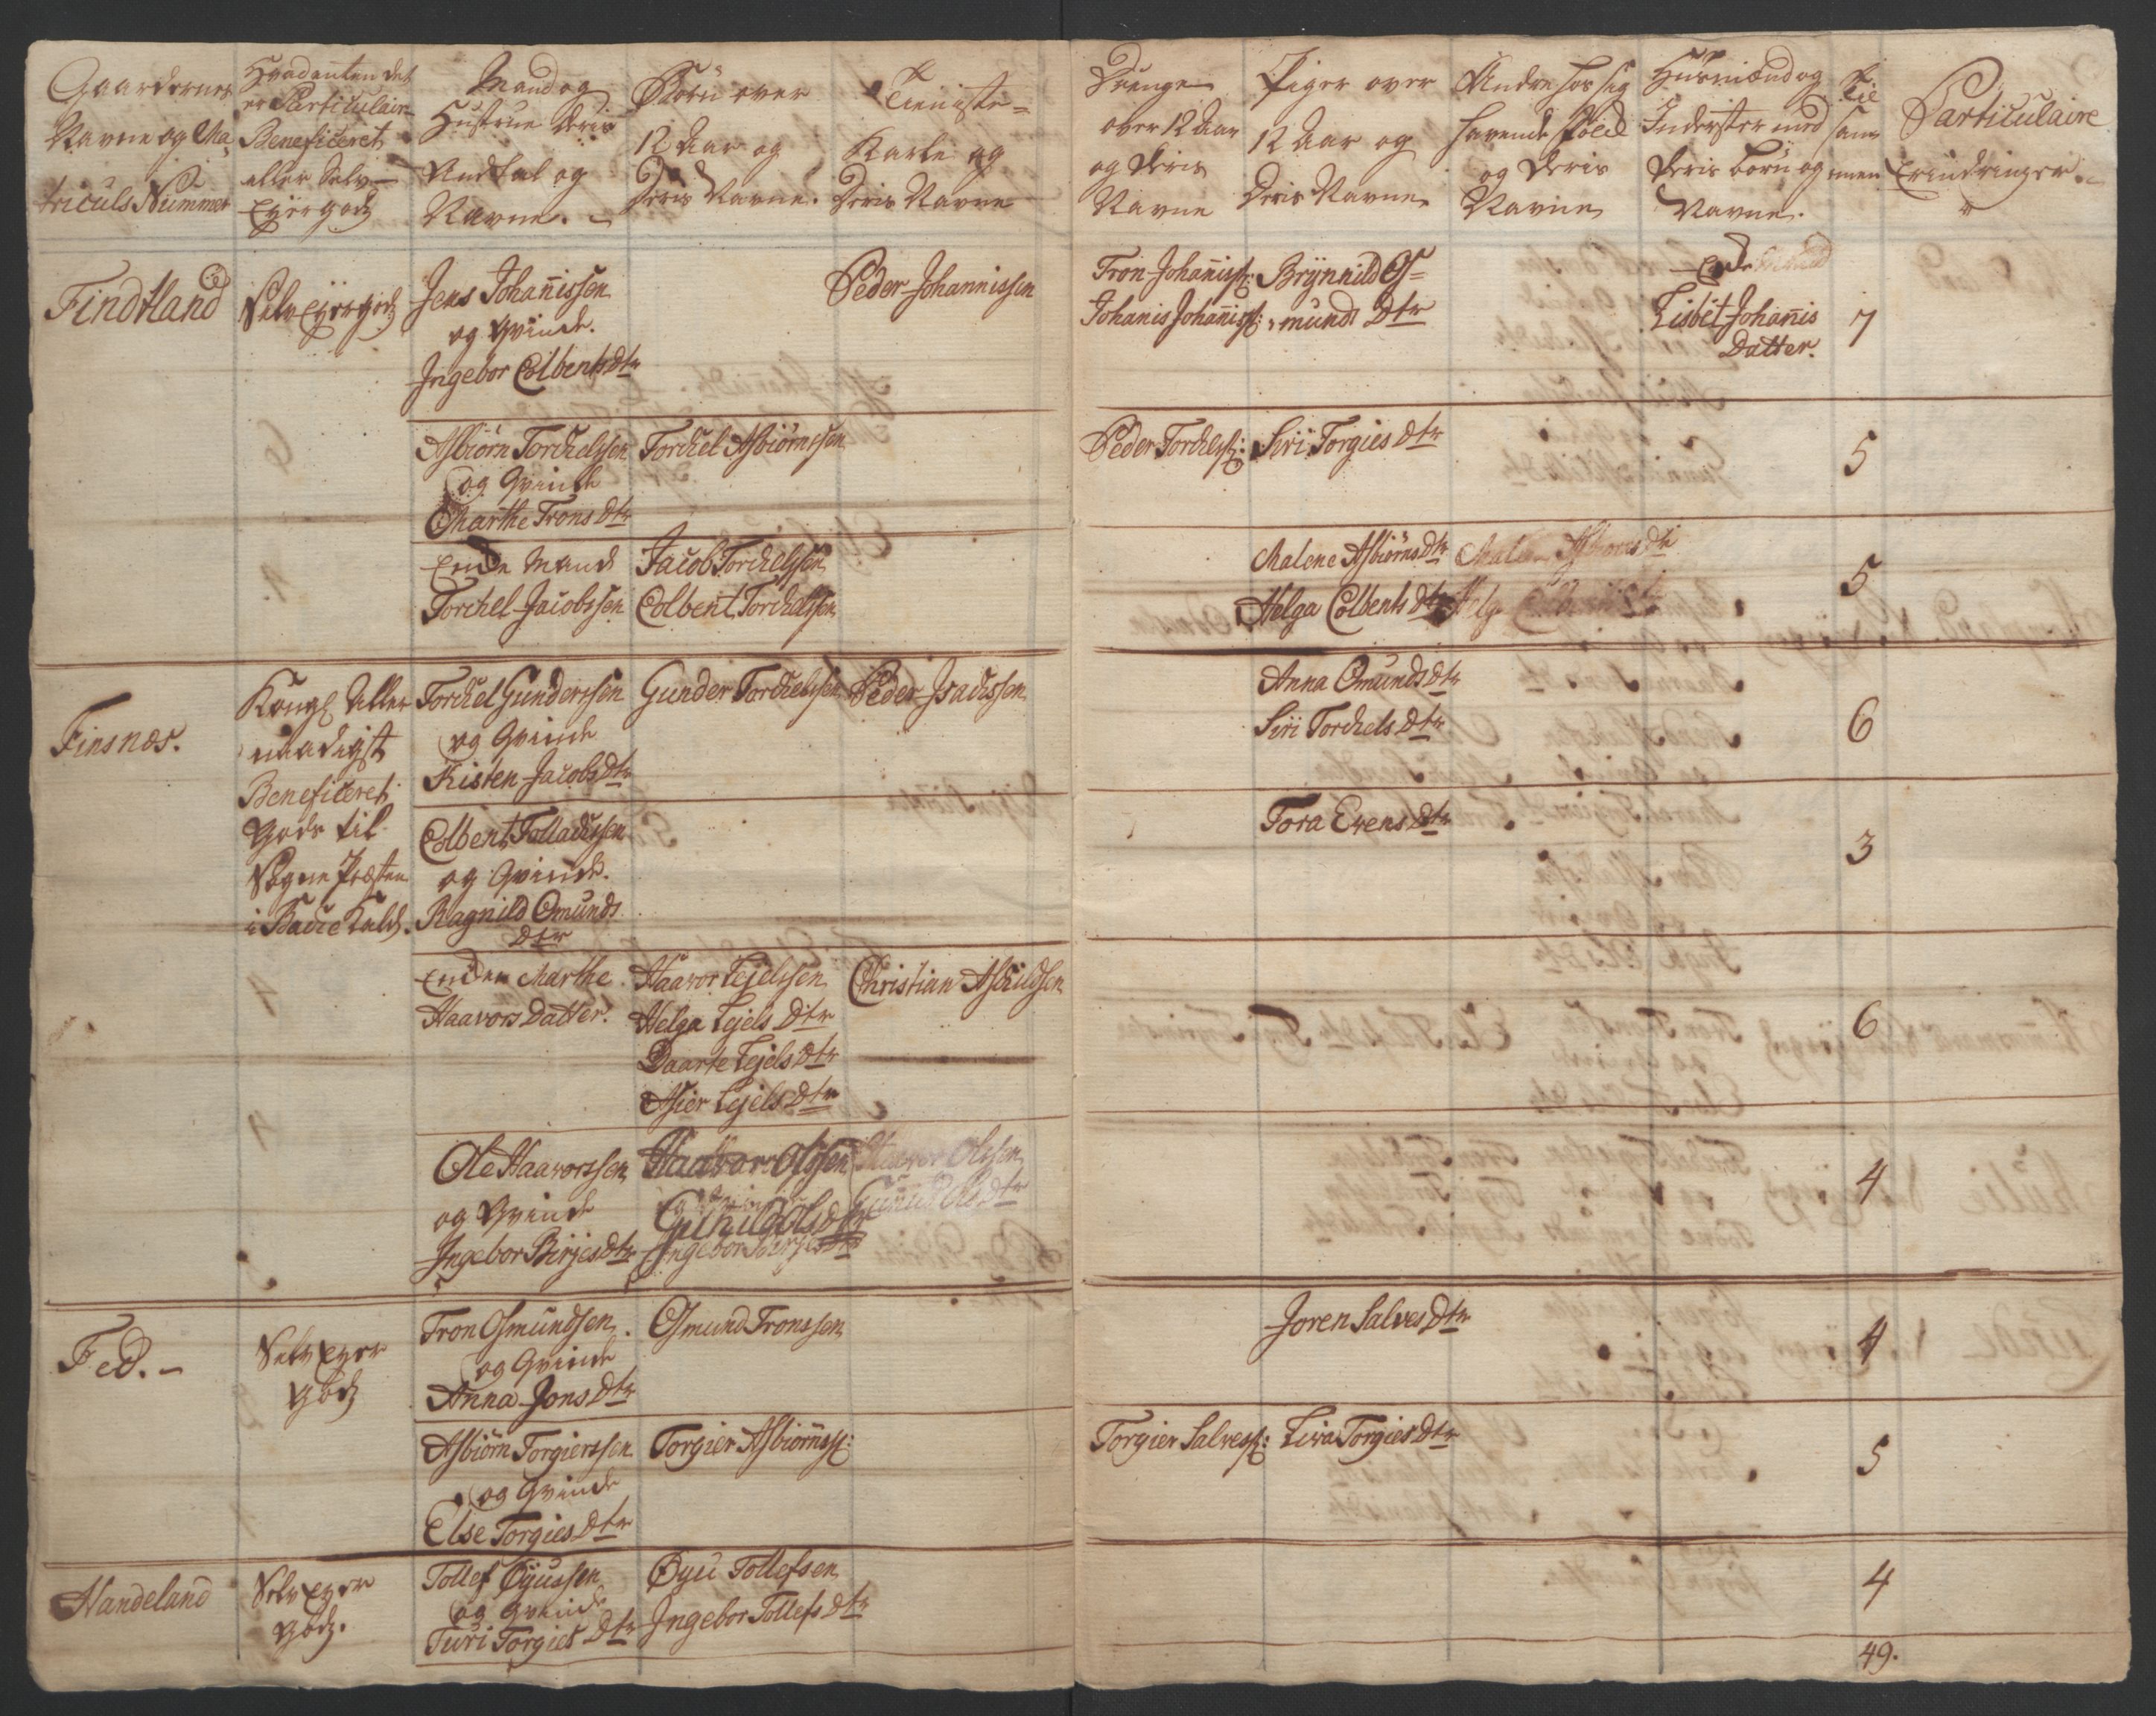 Gaardernes
Navne og Ma-
triculs Nummer
Hvadenten det
er Particulair
Beneficeret
eller Selv-
Eyergods
Mand og
Hustrue deris
Andtal og
Navne.
Børn over
12 Aar og
Deris Navne.
Tieniste-
Karle og
Deris Navne
Drenge
over 12 Aar
og deris
Navne
Piger over
12 Aar og
Deris Navne
Andre hos sig
havende Folck
og deris
Navne
Husmænd og
Inderster med
deris børn og
Navne.
Til
sam-
men
Particulaire
Erindringer.
Findtland
Selv Eyergods
Jens Johanissen
og Qvinde.
Ingebor Colbents dtr
Peder Johannissen
Tron Johaniss:
Johanis Johaniss:
Brÿnnild Os-
munds Dtr
Enke
Lisbet Johanis
Datter.
7
Asbiørn Torchelssen
og Qvinde
Marthe Trons dtr
Torchel Asbiørnssen
Peder Torchels:
Siri Torgies dtr
5
Enke Mand
Torchel Jacobssen
Jacob Torchelssen
Colbent Torchelssen
Malene Asbiørns dtr
Helga Colbents dtr
5
Finsnæs.
Kongl Aller
naadigst
Beneficeret
gods til
Sogne Præsten
i Backe Kald.
Torchel Gunderssen
og Qvinde
Kisten Jacobs dtr
Gunder Torchelssen
Peder Isachssen
Anna Omunds dtr
Siri Torchels dtr
6
Colbent Talladssen
og Qvinde.
Ragnild Omunds
Dtr
Tora Evens dtr
3
Enken Marthe
Haavors Datter.
Haavor Tejelssen
Helga Tejels Dtr
Daarte Tejels dtr
Asier Tejels dtr
Christian Aschildsen
6
Ole Haavorssen
og Qvinde
Ingebor Birjes dtr
Haavor Olssen
Gunild Ols dtr
4
Fed.
Selv Eyer
gods
Tron Osmundsen
og Qvinde
Anna Jons dtr
Osmund Tronssen
Joren Salves dtr
4
Asbiørn Torgierssen
og Qvinde
Else Torgies dtr
Torgier Asbiørnss:
Torgier Salvess:
Liva Torgies dtr
5
Handeland
Selv Eyer
gods.
Tollef Øyussen
og Qvinde
Turi Torgies dtr
Øyu Tollefsen
Ingebor Tollefs dtr
4
49.